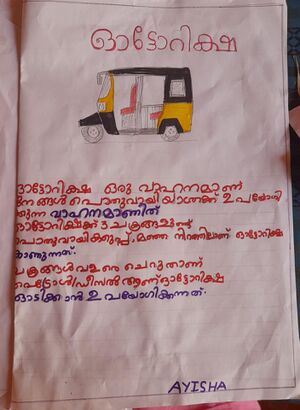 ഓട്ടോറിക്ഷ
ഓട്ടോറിക്ഷ ഒരു വാഹനമാണ്
ജനങ്ങൾ പൊതുവായി യാത്രക്ക് ഉപയോഗി
ക്കുന്ന വാഹനമാണിത്
ഓട്ടോറിക്ഷക്ക് 3 ചക്രങ്ങളുണ്ട്
പൊതുവായി കറുപ്പ്, മഞ്ഞ നിറത്തിലാണ് ഓട്ടോറിക്ഷ
കാണുന്നത്.
ചക്രങ്ങൾ വളരെ ചെറുതാണ്
പെട്രോൾ/ഡീസൽ ആണ് ഓട്ടോറിക്ഷ
ഓടിക്കാൻ ഉപയോഗിക്കുന്നത്.
AYISHA